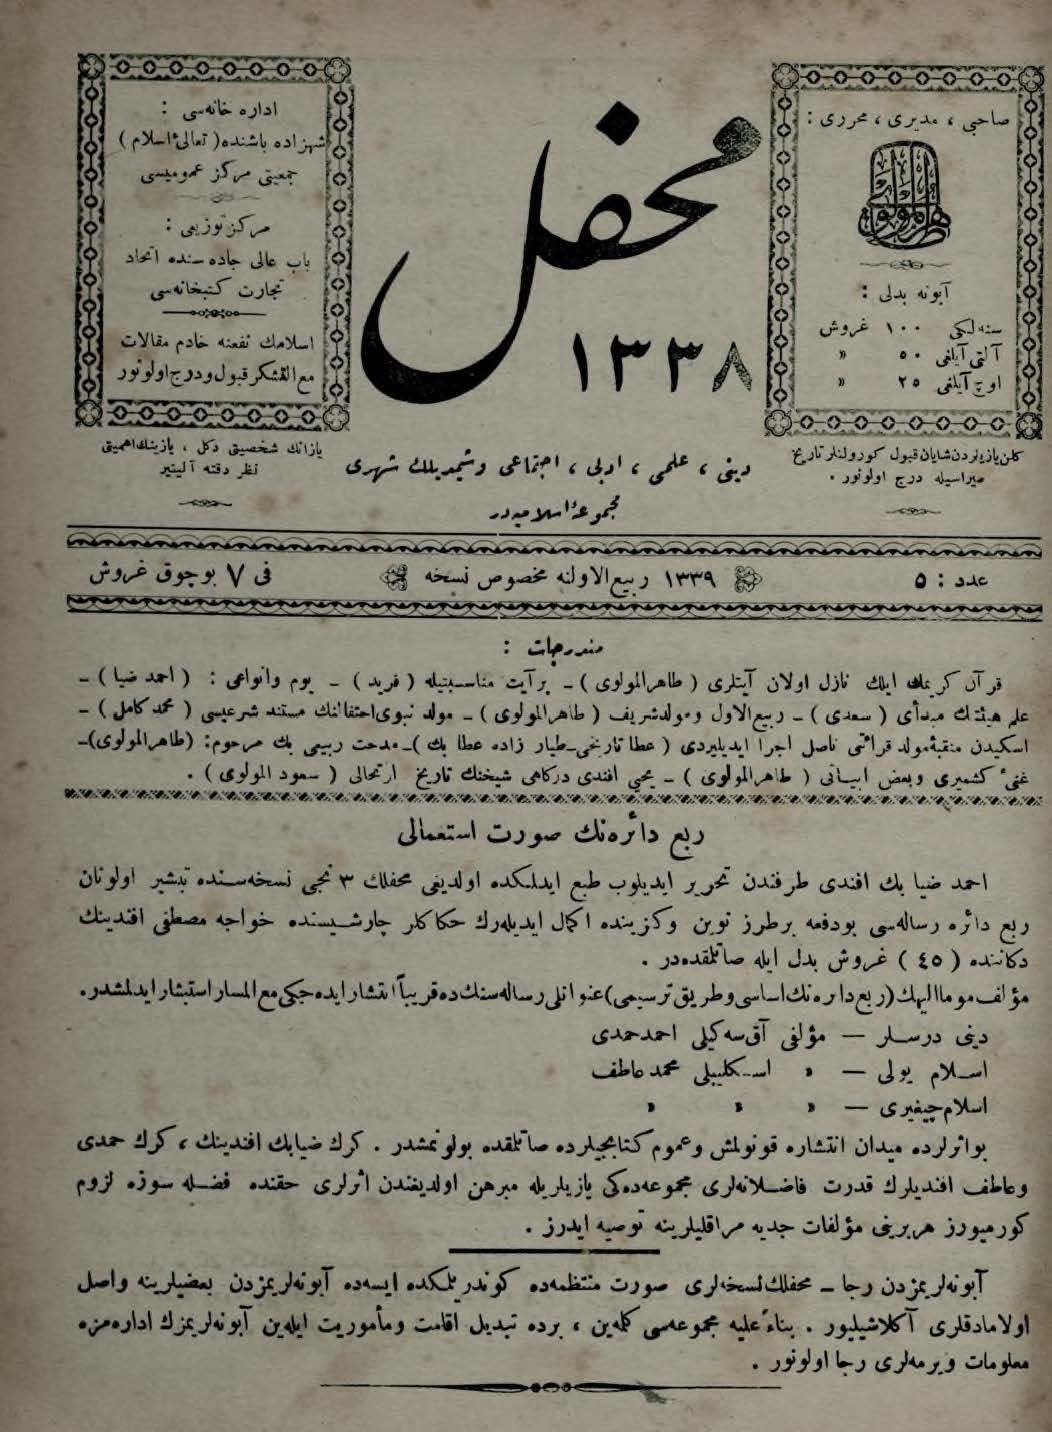 صاحبی ، مدیری ، محرری :
طاهر المولوی
آبونه بدلی :
سنه‌لكی ١٠٠ غروش
آلتی آیلغی ٥٠ »
اوچ آیلغی ٢٥ »
كلن یازیلردن شایان قبول كورولنلر تاریخ
صیراسیله درج اولونور .
محفل
١٣٣٨
دینی ، علمی ، ادبی ، اجتماعی وشمدیلك شهری
مجموعهٔ اسلامیه‌در
اداره خانه‌سی :
شهزاده باشنده ( تعالیٔ اسلام )
جمعیتی مركز عمومیسی
مركز توزیعی :
باب عالی جاده سنده اتحاد
تجارت كتبخانه‌سی
اسلامك نفعنه خادم مقالات
مع التشكر قبول ودرج اولونور
یازانك شخصیتی دكل ، یازینك اهمیتی
نظر دقته آلینیر
عدد : ٥
١٣٣٩ ربیع الاولنه مخصوص نسخه
فی ٧ بوچوق غروش
مندرجات :
قرآن كریمك ایلك نازل اولان آیتلری ( طاهرالمولوی ) ـ بر آیت مناسبتیله ( فرید ) ـ یوم وانواعی : ( احمد ضیا ) ـ
علم هیئتك مبدأی ( سعدی ) ـ ربیع الاول ومولد شریف ( طاهرالمولوی ) ـ مولد نبوی احتفالنك مستند شرعیسی ( محمد كامل ) ـ
اسكیدن منقبهٔ مولد قرائتی ناصل اجرا ایدیلیردی ( عطا تاریخی ـ طیار زاده عطا بك ) ـ مدحت ربیعی بك مرحوم : ( طاهر المولوی ) ـ
غنیٔ كشمیری وبعض ابیاتی ( طاهر المولوی ) ـ یحیی افندی دركاهی شیخنك تاریخ ارتحالی ( سعود المولوی ) .
ربع دائره‌نك صورت استعمالی
احمد ضیا بك افندی طرفندن تحریر ایدیلوب طبع ایدلمكده اولدیغی محفلك ٣ نجی نسخه‌سنده تبشیر اولونان
ربع دائره رساله‌سی بودفعه برطرز نوین وكزینده اكمال ایدیله‌رك حكاكلر چارشیسنده خواجه مصطفی افندینك
دكاننده ( ٤٥ ) غروش بدل ایله صاتلقده‌در .
مؤلف مومالیهك ( ربع دایره‌نك اساسی وطریق ترسیمی ) عنوانلی رساله‌سنك ده قریباً انتشار ایده‌جكی مع المسار استبشار ایدلمشدر .
دینی درسلر — مؤلفی آق‌سه‌كیلی احمد حمدی
اسلام یولی — » اسكلیبلی محمد عاطف
اسلام چیغیری — » » »
بو اثرلرده میدان انتشاره قونولمش وعموم كتابجیلرده صاتلقده بولونمشدر . كرك ضیابك افندینك ، كرك حمدی
وعاطف افندیلرك قدرت فاضلانه‌لری مجموعه‌ده‌كی یازیلریله مبرهن اولدیغندن اثرلری حقنده فضله سوزه لزوم
كورمیورز هربرینی مؤلفات جدیه مراقلیلرینه توصیه ایدرز .
آبونه‌لریمزدن رجا ـ محفلك نسخه‌لری صورت منتظمه‌ده كوندرلمكده ایسه‌ده آبونه‌لریمزدن بعضیلرینه واصل
اولامادقلری آكلاشیلیور . بناءً علیه مجموعه‌سی كلمه‌ین ، یرده تبدیل اقامت ومأموریت ایله‌ین آبونه‌لریمزك اداره‌مزه
معلومات ویرمه‌لری رجا اولونور .